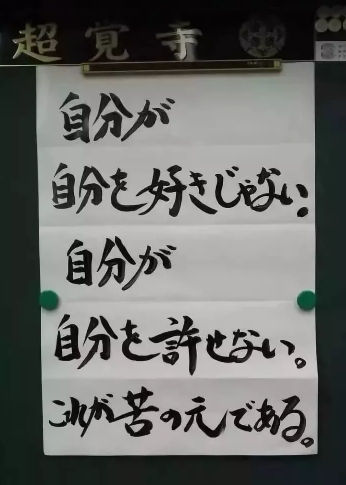 超覚寺
自分が
自分を好きじゃない。
自分が
自分を許せない。
これが苦の元である。